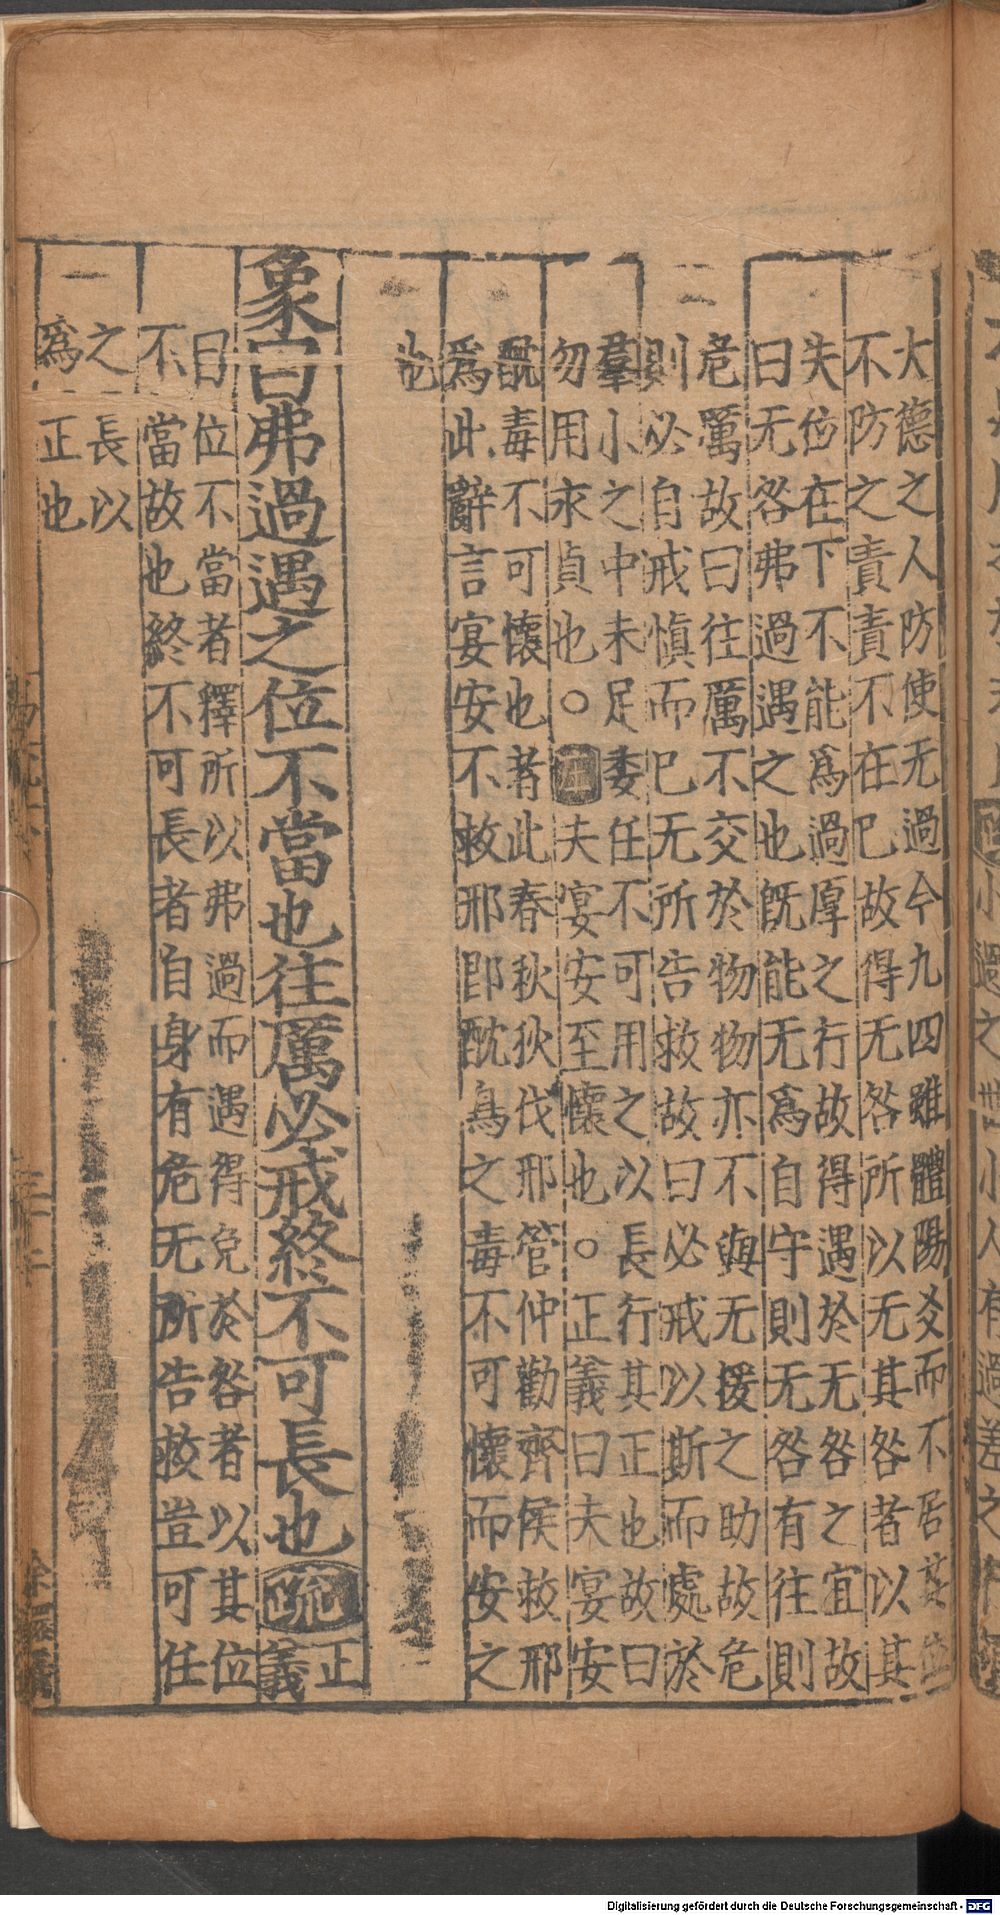 小過之世小人有過差之
大德之人防使无過今九四雖體陽爻而不居其位
不防之責責不在已故得无咎所以无其咎者以其
失位在下不能爲過厚之行故得遇於无咎之宜故
曰无咎弗過遇之也既能无爲自守則无咎有往則
危厲故曰往厲不交於物物亦不與无援之助故危
則必自戒慎而巳无所告救故曰必戒以斯而處於
羣小之中未足委任不可用之以長行其正也故曰
勿用永貞也○注夫宴安至懷也○正義曰夫宴安
酖毒不可懷也者此春秋狄伐邪管仲勸齊侯救邢
爲此辭言宴安不救邪即酖鳥之毒不可懷而安之
也
象曰弗過遇之位不當也往厲必戒終不可長也疏正義
曰位不當者釋所以弗過而遇得免於咎者以其位
不當故也終不可長者自身有危无所告救豈可任
之長以
爲正也
Digitalisierung gefördert durch die Deutsche Forschungsgemeinschaft - DFG